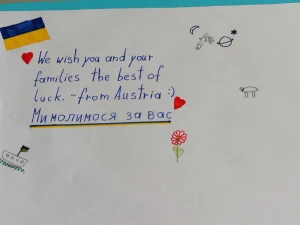 We wish you and your
families the best of
luck. - from Austria :)
Ми молимося за вас